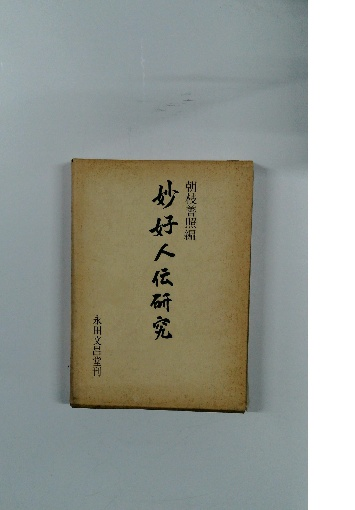 朝枝善照編
妙好人伝研究
永田文昌堂刊